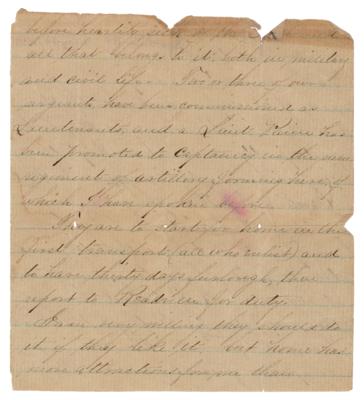 before heartily sick of the
all that belongs to it, both in military
and civil life. Two or three of our
sergeants have been commissioned as
Lieutenants, and a Lieut has
been promoted to Captaincy in the new
regiment of artillery forming here, of
which I have spoken before
They are to start for home in the
first transport (all who enlist) and
to have thirty days furlough, then
report to Readville for duty.
I am very willing they should do
it if they like it, but home has
more attractions for me than